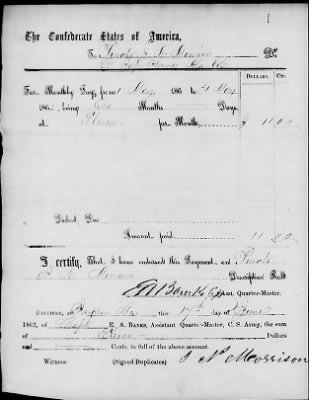 The Confederate States of America,
To Private J. N. Dr.
DOLLARS. CTS.
For Monthly Pay, from 1 May 186 to 31 May
186 , being One Months Days,
at Eleven per Month, $ 11 00
Deduct Due
Amount paid 11 00
I certify, That I have endorsed this Payment on Private
Descriptive Roll.
E A Banks Capt Asst. Quarter-Master.
RECEIVED, at this 17th day of June
1862, of Capt E. A. BANKS, Assistant Quarter-Master, C. S. Army, the sum
of Eleven Dollars
and Cents, in full of the above account.
Witness: (Signed Duplicates) J N Morrison